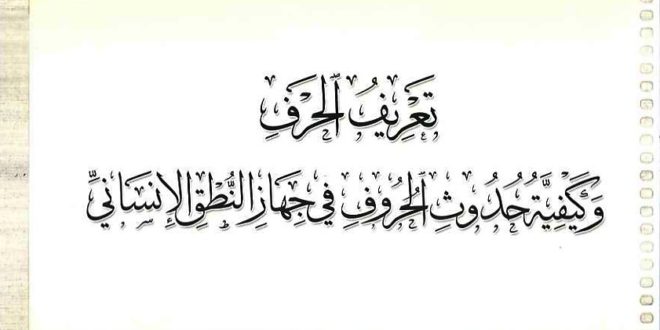 تَعْرِيفُ ٱلْحَرْفِ
وَكَيْفِيَّةُ حُدُوثِ ٱلْحُرُوفِ فِي جِهَازِ النُّطْقِ الْإِنسَانِيِّ